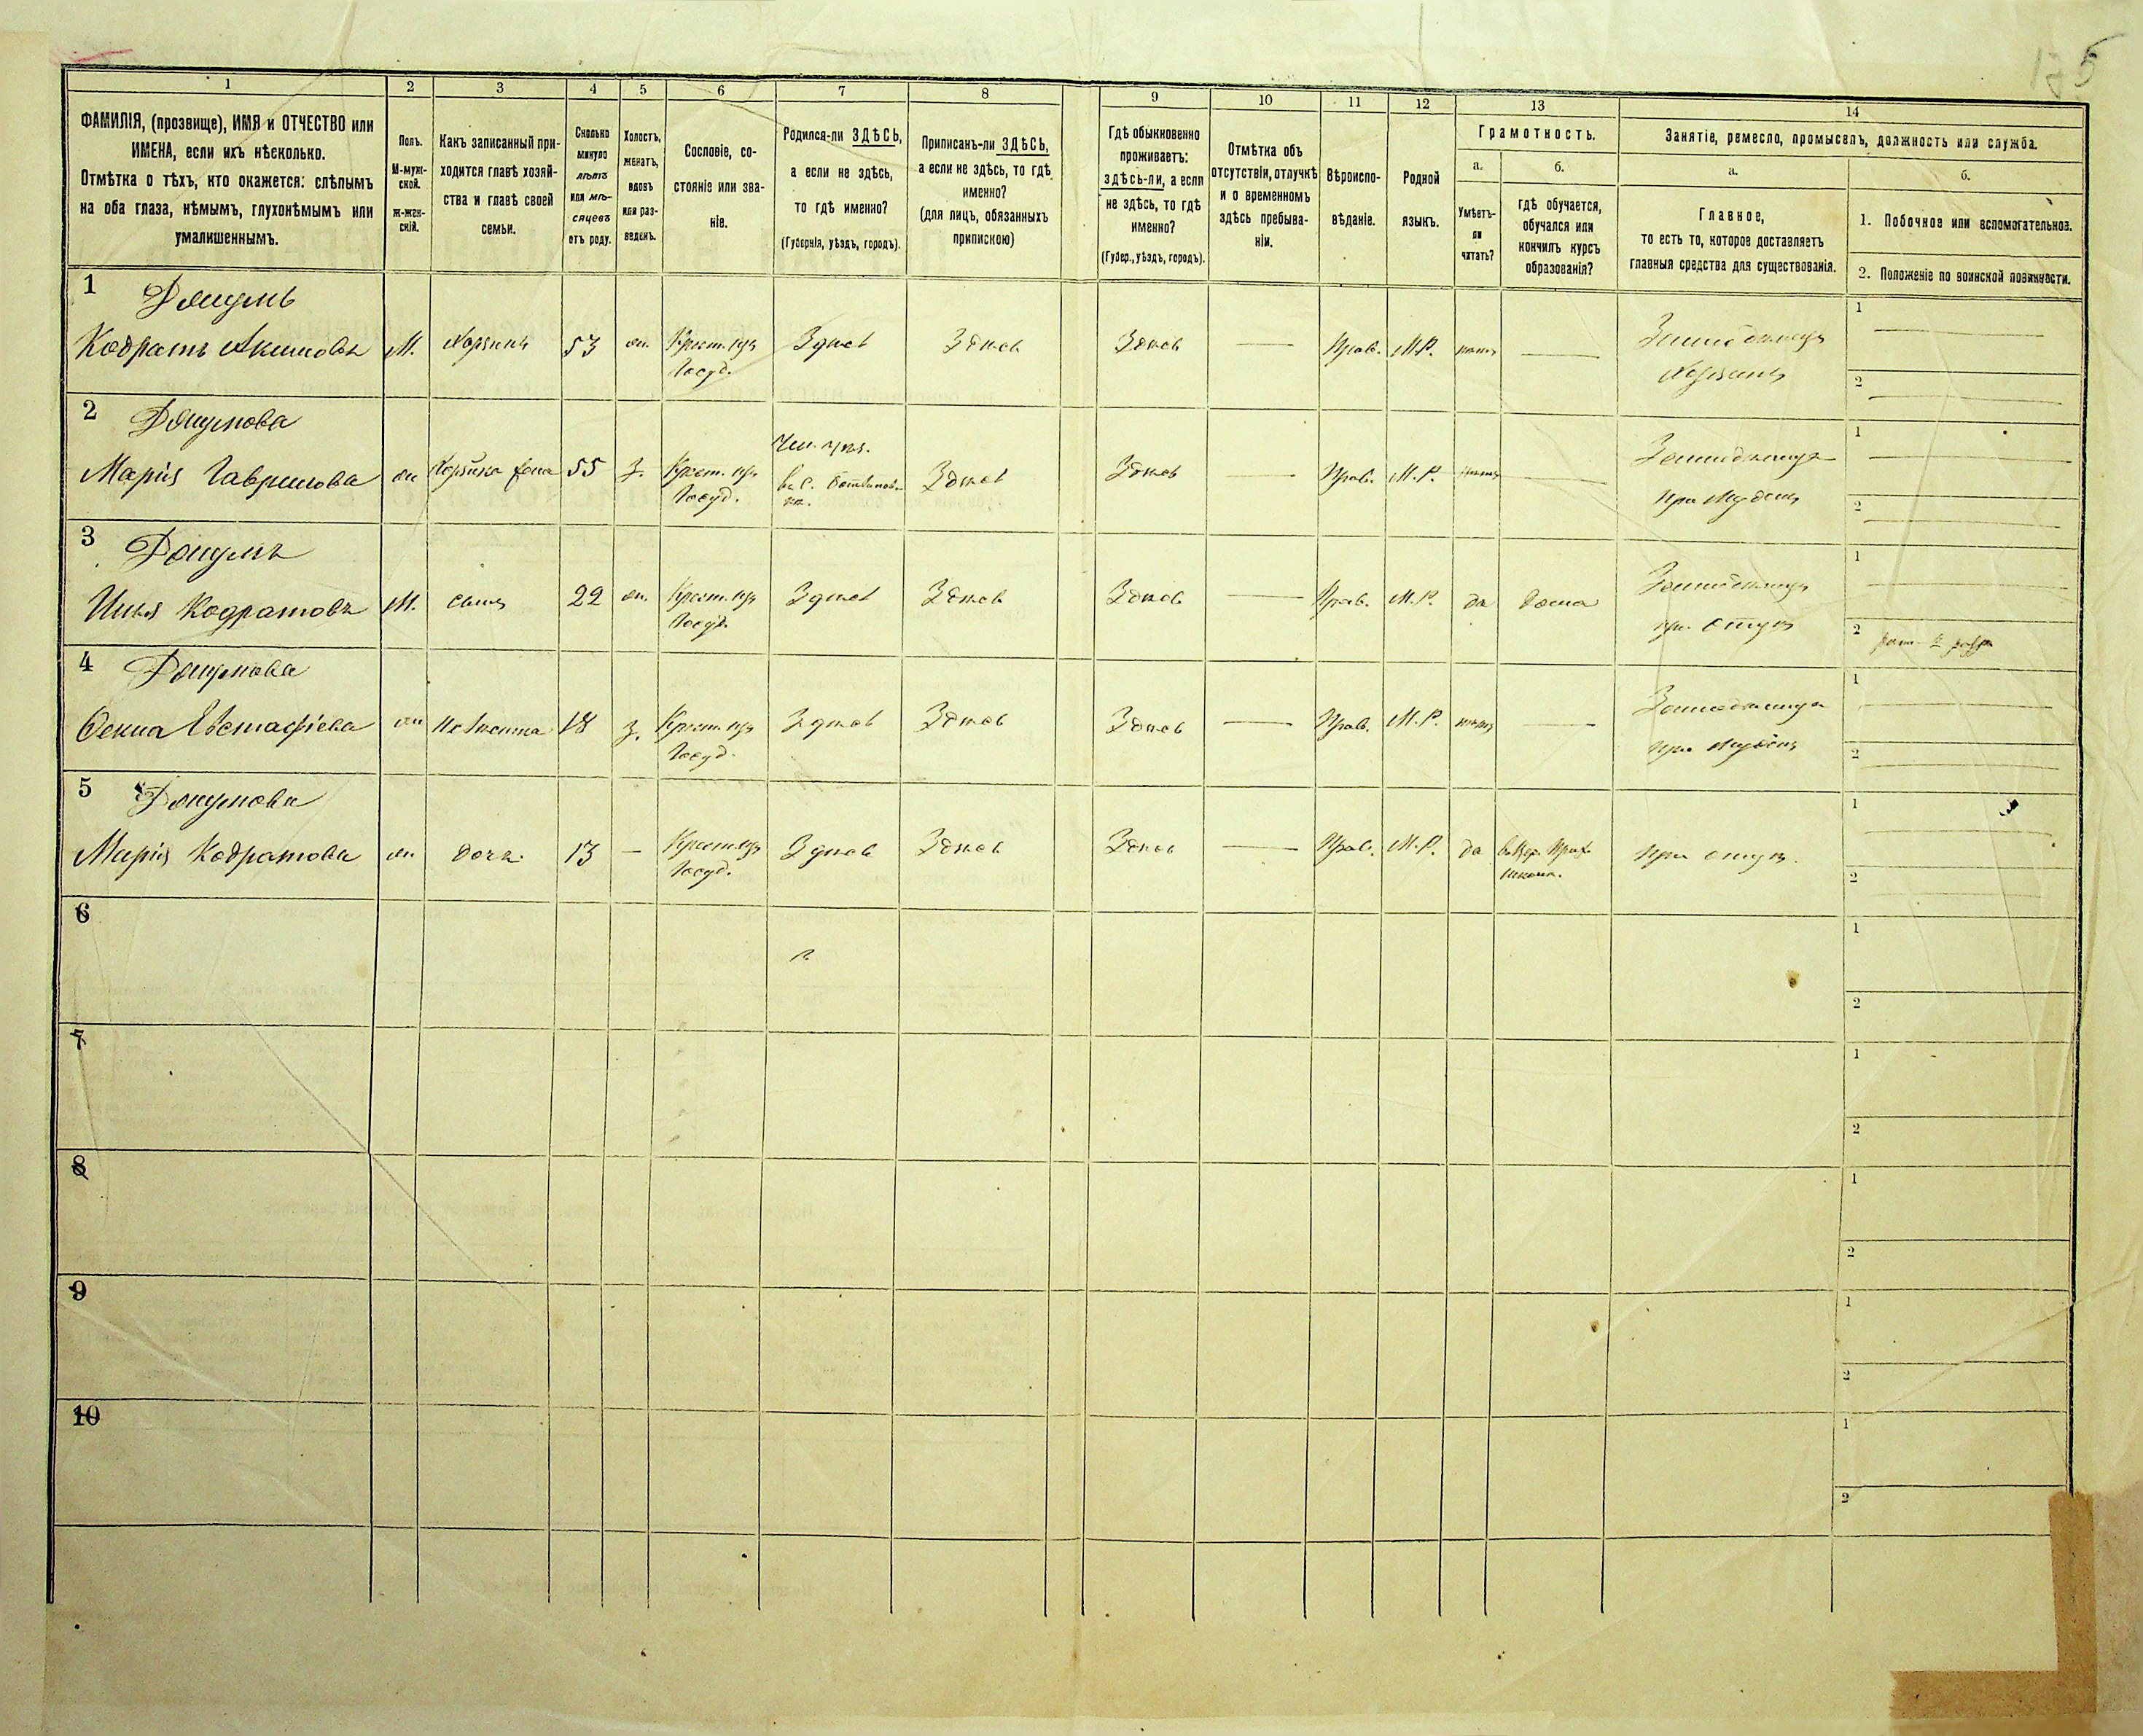 1 2 3 4 5 6 7 8 9 10 11 12 13 14
ФАМИЛІЯ, (прозвище), ИМЯ и ОТЧЕСТВО или
ИМЕНА, если ихъ нѣсколько.
Отмѣтка о тѣхъ, кто окажется: слѣпымъ
на оба глаза, нѣмымъ, глухонѣмымъ или
умалишеннымъ.
Полъ.
М-муж-
ской.
Ж-жен-
скій.
Какъ записанный при-
ходится главѣ хозяй-
ства и главѣ своей
семьи.
Сколько
минуло
лѣтъ
или мѣ-
сяцевъ
отъ роду.
Холостъ,
женатъ,
вдовъ
или раз-
веденъ.
Сословіе, со-
стояніе или зва-
ніе.
Родился-ли ЗДѢСЬ,
а если не здѣсь,
то гдѣ именно?
(Губернія, уѣздъ, городъ).
Приписанъ-ли ЗДѢСЬ,
а если не здѣсь, то гдѣ
именно?
(для лицъ, обязанныхъ
припискою)
Гдѣ обыкновенно
проживаетъ:
здѣсь-ли, а если
не здѣсь, то гдѣ
именно?
(Губер., уѣздъ, городъ).
Отмѣтка объ
отсутствіи, отлучкѣ
и о временномъ
здѣсь пребыва-
ніи.
Вѣроиспо-
вѣданіе.
Родной
языкъ.
Грамотность.
а.
Умѣетъ-
ли
читать?
б.
гдѣ обучается,
обучался или
кончилъ курсъ
образованія?
Занятіе, ремесло, промыселъ, должность или служба.
а.
Главное,
то есть то, которое доставляетъ
главныя средства для существованія.
б.
1. Побочное или вспомогательное.
2. Положеніе по воинской повинности.
1
Кодратъ Акимовъ М. Хозяинъ 53 жн. Крест. изъ Здѣсь Здѣсь Здѣсь — Прав. М.Р. нѣтъ — Земледѣлецъ 1
Госуд. Хозяинъ 2
2
Марія Гаврилова жн Хозяина жена 55 з. Крест. изъ Здѣсь Здѣсь — Прав. М.Р. нѣтъ — 1
Госуд. при мужѣ 2
3
Илья Кодратовъ М. сынъ 22 жн. Крест. изъ Здѣсь Здѣсь Здѣсь — Прав. М.Р. да дома Земледѣлецъ 1
Госуд. при отцѣ 2
4
Евстафіева жн Невѣстка 18 з. Крест. изъ Здѣсь Здѣсь Здѣсь — Прав. М.Р. нѣтъ — 1
Госуд. при мужѣ 2
5
Марія Кодратова жн дочь 13 — Крест. изъ Здѣсь Здѣсь Здѣсь — Прав. М.Р. да при отцѣ. 1
Госуд. 2
6 1
2
7 1
2
8 1
2
9 1
2
10 1
2